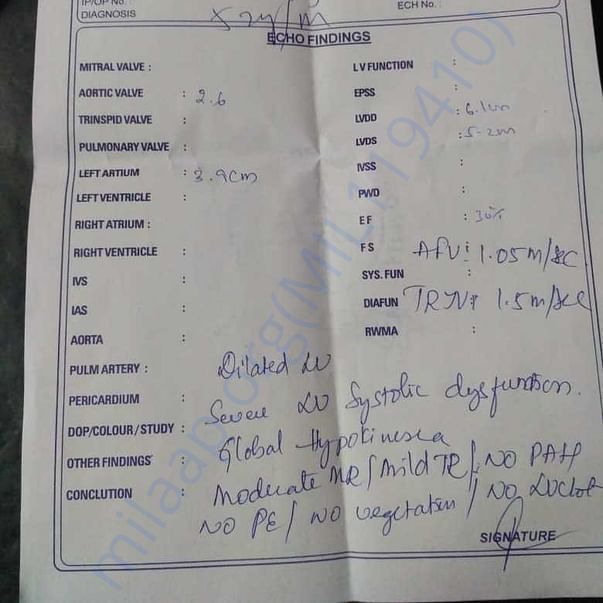 IP/OP No. :
ECH No. :
DIAGNOSIS
ECHO FINDINGS
MITRAL VALVE :
L V FUNCTION :
AORTIC VALVE : 2.6
EPSS :
TRINSPID VALVE :
LVDD : 6.1cm
PULMONARY VALVE :
LVDS : 5.2cm
LEFT ARTIUM : 3.9cm
IVSS :
LEFT VENTRICLE :
PWD :
RIGHT ATRIUM :
E F : 30%
RIGHT VENTRICLE :
F S
: 1.05 m/sec
IVS :
SYS. FUN
IAS :
DIAFUN
1.5 m/sec
AORTA :
RWMA :
PULM ARTERY :
Dilated LV
PERICARDIUM :
Severe LV Systolic dysfunction.
DOP/COLOUR/STUDY :
Global Hypokinesia
OTHER FINDINGS :
Moderate MR / Mild TR / NO PAH
CONCLUTION :
NO PE / NO vegetation / NO LV clot
SIGNATURE
milaap.org(MIL119410)